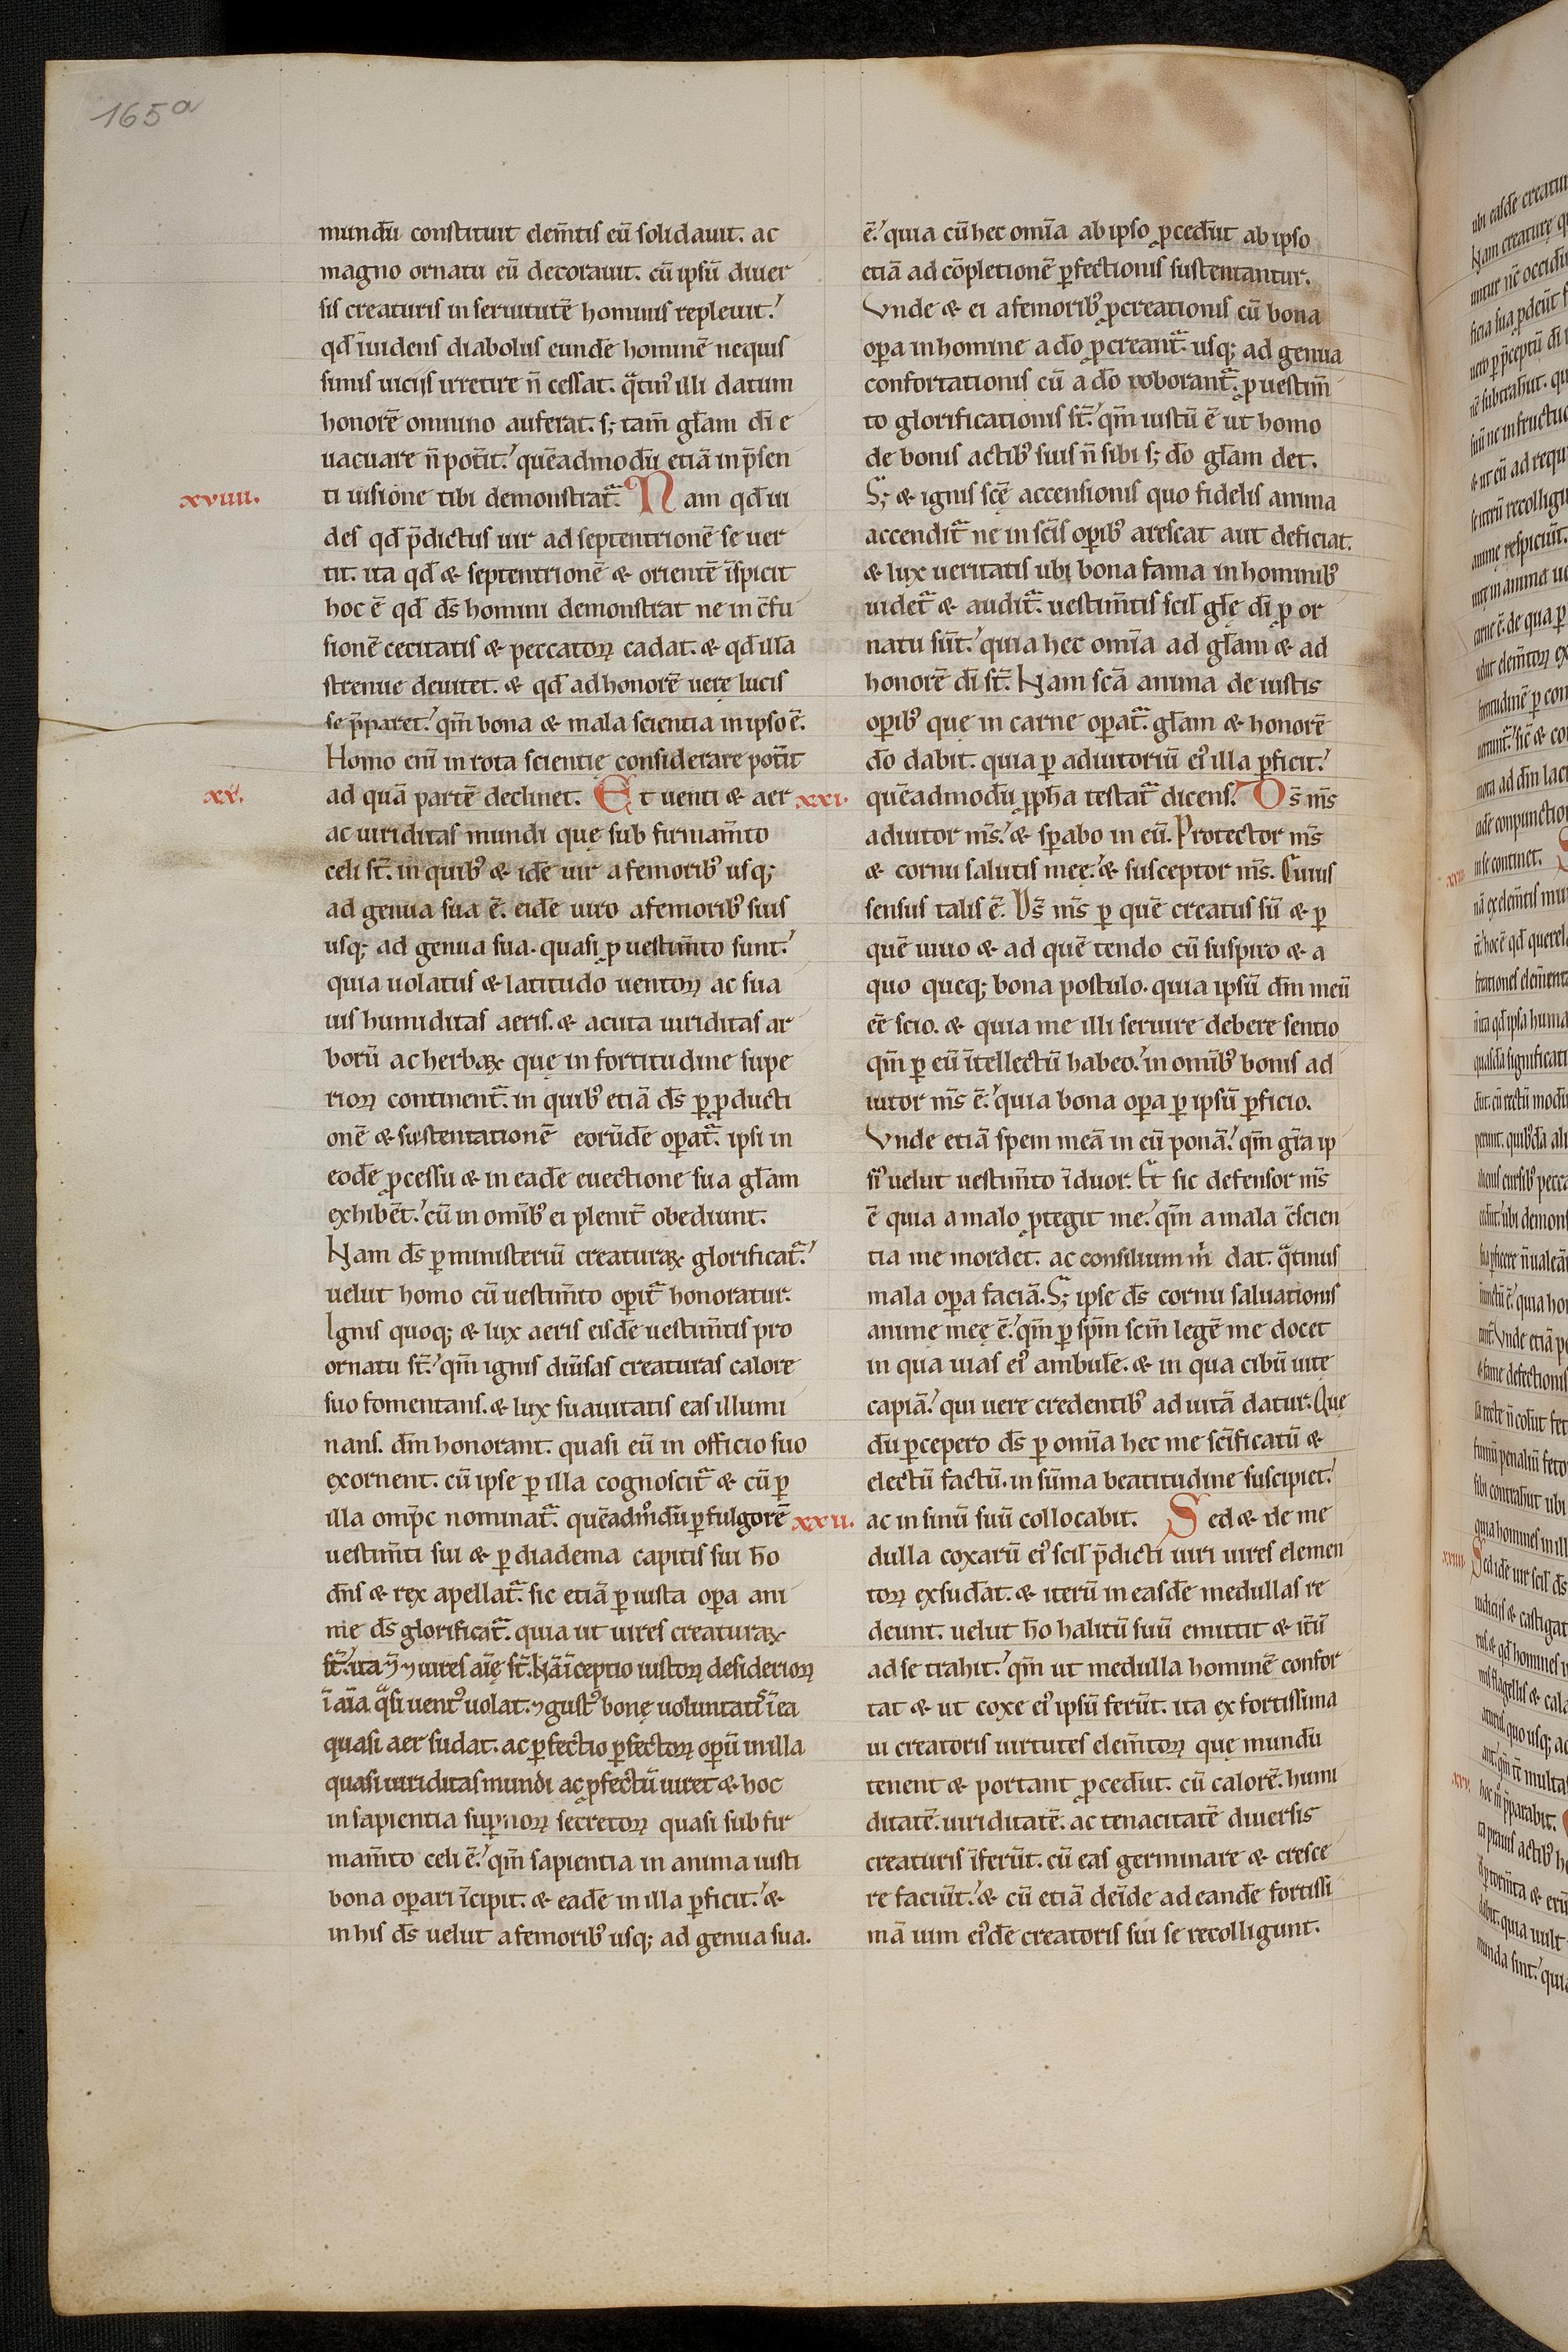 165a
mundū constituit elem̄tis eū solidauit. ac
magno ornatu eū decorauit. cū ipsū diuer
sis creaturis in seruitutē hominis repleuit.
qd̄ īuidens diabolus eundē hominē nequis
simis uiciis irretire n̄ cessat. qͣtinꝰ illi datum
honorē omnino auferat. s; tam̄ glām dī e
uacuare n̄ potīt. quēadmodū etiā in p̄sen
xviiii. ti uisione tibi demonstratͣ. Nam qd̄ ui
des qd̄ p̄dictus uir ad septentrionē se uer
tit. ita qd̄ & septentrionē & orientē īspicit
hoc ē qd̄ ds̄ homini demonstrat ne in c̄fu
sionē cecitatis & peccatoꝝ cadat. & qd̄ illa
strenue deuitet. & qd̄ ad honorē uere lucis
se p̄paret. qm̄ bona & mala scientia in ipso ē.
Homo enī in rota scientię considerare potīt
xx. ad quā partē declinet. Et uenti & aer
ac uiriditas mundi quę sub firmam̄to
celi st̄. in quibꝰ & idē uir a femoribꝰ usq;
ad genua sua ē. eidē uiro a femoribꝰ suis
usq; ad genua sua. quasi ꝓ uestim̄to sunt.
quia uolatus & latitudo uentoꝝ ac sua
uis humiditas aeris. & acuta uiriditas ar
borū ac herbaꝝ quę in fortitudine supe
rioꝝ continentͣ. in quibꝰ etiā ds̄ ꝑ ꝓducti
onē & sustentationē eorūdē opatͣ. ipsi in
eodē ꝓcessu & in eadē euectione sua glām
exhibēt. cū in omībꝰ ei plenit̄ obediunt.
Nam ds̄ ꝑ ministeriū creaturaꝝ glorificatͣ.
uelut homo cū uestim̄to opitͣ honoratur.
Ignis quoq; & lux aeris eisdē uestim̄tis pro
ornatu st̄. qm̄ ignis diūsas creaturas calore
suo fomentans. & lux suauitatis eas illumi
nans. dm̄ honorant. quasi eū in officio suo
exornent. cū ipse ꝑ illa cognoscitͣ & cū ꝑ
illa omp̄c nominatͣ. quēadm̊dū ꝑ fulgorē
uestim̄ti sui & ꝑ diadema capitis sui ho̅
dn̄s & rex apellatͣ. sic etiā ꝑ iusta opa ani
me ds̄ glorificatͣ. quia ut uires creaturaꝝ
quasi aer sudat. ac ꝑfectio ꝑfectoꝝ opū in illa
quasi uiriditas mundi ac ꝓfectū uiret & hoc
in sapientia supnoꝝ secretoꝝ quasi sub fir
mam̄to celi ē. qm̄ sapientia in anima iusti
bona opari īcipit. & eadē in illa ꝑficit. &
in his ds̄ uelut a femoribꝰ usq; ad genua sua.
ē. quia cū hec omīa ab ipso ꝓcedūt ab ipso
etiā ad cōpletionē ꝑfectionis sustentantur.
Vnde & ei a femoribꝰ ꝓcreationis cū bona
opa in homine a do̅ ꝓcreantͣ. usq; ad genua
confortationis cū a do̅ roborantͣ. ꝓ uestim̄
to glorificationis st̄. qm̄ iustū ē ut homo
de bonis actibꝰ suis n̄ sibi s; do̅ glām det.
S; & ignis scē accensionis quo fidelis anima
accenditͣ ne in scīs opibꝰ arescat aut deficiat.
& lux ueritatis ubi bona fama in hominibꝰ
uidetͣ & auditͣ. uestim̄tis scil̄ glę dī ꝓ or
natu sūt. quia hec omīa ad glām & ad
honorē dī st̄. Nam scā anima de iustis
opibꝰ que in carne opatͣ. glām & honorē
do̅ dabit. quia ꝑ adiutoriū eiꝰ illa ꝑficit.
xxi. quēadmodū ꝓph̄a testatͣ dicens. Ds̄ ms̄
adiutor ms̄. & spabo in eū. Protector ms̄
& cornu salutis mee. & susceptor ms̄. Cuius
sensus talis ē. Ds̄ ms̄ ꝑ quē creatus sū & ꝑ
quē uiuo & ad quē tendo cū suspiro & a
quo queq; bona postulo. quia ipsū dm̄ meū
eē scio. & quia me illi seruire debere sentio
qm̄ ꝑ eū ītellectū habeo. in omībꝰ bonis ad
iutor ms̄ ē. quia bona opa ꝑ ipsū ꝑficio.
Vnde etiā spem meā in eū ponā. qm̄ grā ip
siꝰ uelut uestim̄to īduor. Et sic defensor ms̄
ē quia a malo ꝓtegit me. qm̄ a mala c̄scien
tia me mordet. ac consilium m̄ dat. qͣtinus
mala opa faciā. S; ipse ds̄ cornu saluationis
anime meę ē. qm̄ ꝑ spm̄ scm̄ legē me docet
in qua uias eiꝰ ambulē. & in qua cibū uite
capiā. qui uere credentibꝰ ad uitā datur. Que
dū ꝑcepero ds̄ ꝑ omīa hec me scīficatū &
electū factū. in sūma beatitudine suscipiet.
xxii. ac in sinū suū collocabit. Sed & de me
dulla coxarū eiꝰ scil̄ p̄dicti uiri uires elemen
toꝝ exsudāt. & iterū in easdē medullas re
deunt. uelut ho̅ halitū suū emittit & it̄ū
ad se trahit. qm̄ ut medulla hominē confor
tat & ut coxe eiꝰ ipsū ferūt. ita ex fortissima
ui creatoris uirtutes elem̄toꝝ que mundū
tenent & portant ꝓcedūt. cū calorē. humi
ditatē. uiriditatē. ac tenacitatē diuersis
creaturis īferūt. cū eas germinare & cresce
re faciūt. & cū etiā deīde ad eandē fortissi
mā uim eiꝰdē creatoris sui se recolligunt.